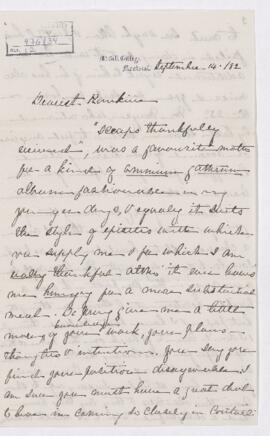 McGill College
Montreal September 14. /92
Dearest Rankine
"Scraps thankfully
received", was a favourite motto
for a kind of omnium gatherum
album fashionable in my
younger days, & equally it suits
the style of epistles with which
you supply me & for which I am
really thankful altho' it ever leaves
me hungry for a more substantial
meal. Do pray give me a little
more of your work, your plans
thoughts & intentions. You say you
find your position disagreeable I
am sure you must have a great deal
to learn in coming so closely in contact